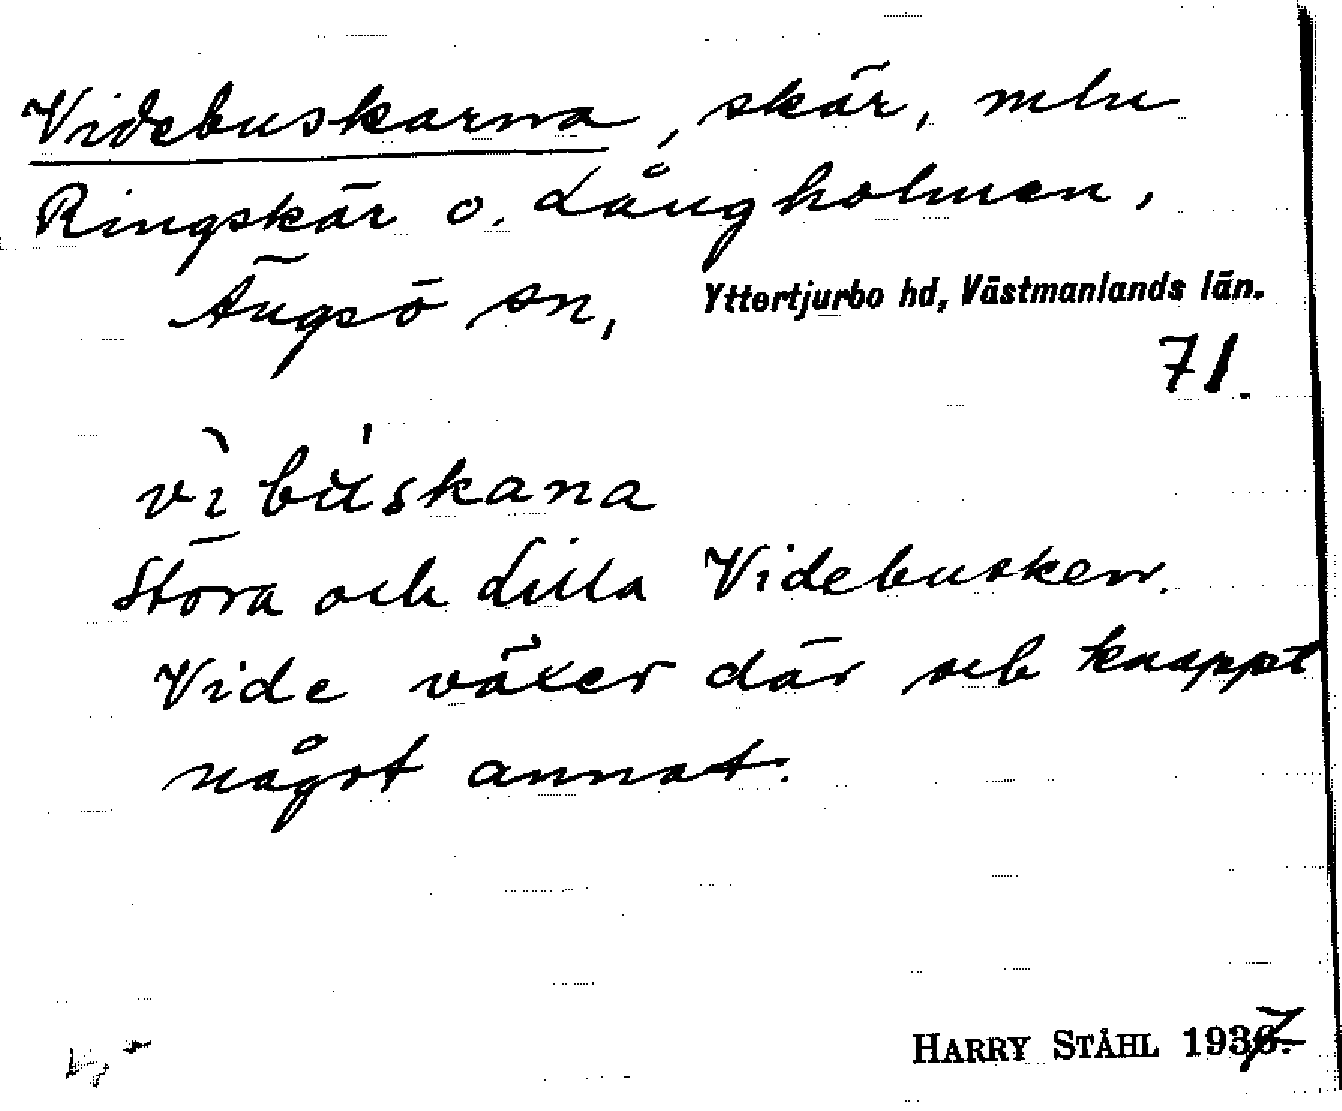 Videbuskarna, skär, mln
Ringskär o. Långholmen,
Ängsö sn, Yttertjurbo hd, Västmanlands län.
71.
vì bu̍skana
Stora och Lilla Videbusken.
Vide växer där och knappt
något annat.
HARRY STÅHL 1937